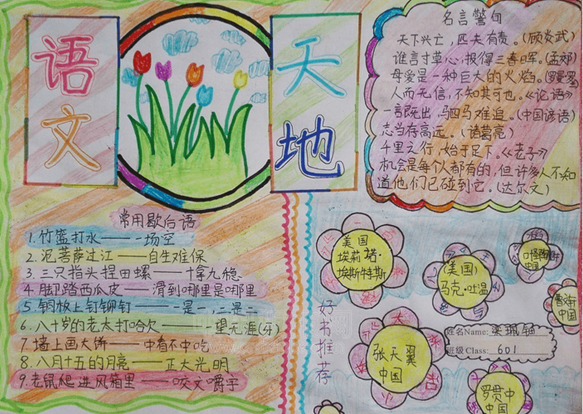 语文
天地
名言警句
天下兴亡，匹夫有责。(顾炎武)
谁言寸草心，报得三春晖。(孟郊)
母爱是一种巨大的火焰。(罗曼罗)
人而无信，不知其可也。《论语》
一言既出，马四马难追。(中国谚语)
志当存高远。(诸葛亮)
千里之行，始于足下。《老子》
机会是每个人都有的，但许多人不知
道他们已碰到它。(达尔文)
常用歇后语
1.竹篮打水——一场空
2.泥菩萨过江——自生难保
3.三只指头捏田螺——十拿九稳
4.脚踏西瓜皮——滑到哪里是哪里
5.钢板上钉铆钉——一是一,二是二
6.八十岁的老太打哈欠——一望无涯(牙)
7.墙上画大饼——中看不中吃
8.八月十五的月亮——正大光明
9.老鼠爬进风箱里——咬文嚼字
好书推荐
美国
埃莉塔·
埃斯特斯
(美国)
马克·吐温
张天翼
中国
罗贯中
中国
姓名Name:
班级Class: 601